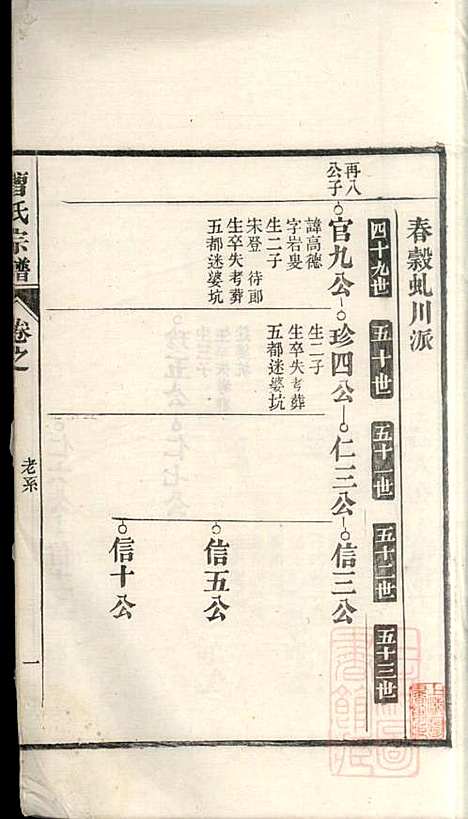 春穀虬川派
四十九世
五十世
五十一世
五十二世
五十三世
再八公子
官九公
諱高德
字岩叟
生二子
宋登待郎
生卒失考葬
五都迷婆坑
珍四公
生二子
生卒失考葬
五都迷婆坑
仁三公
信三公
信五公
信十公
曹氏宗譜
卷之
老系
一